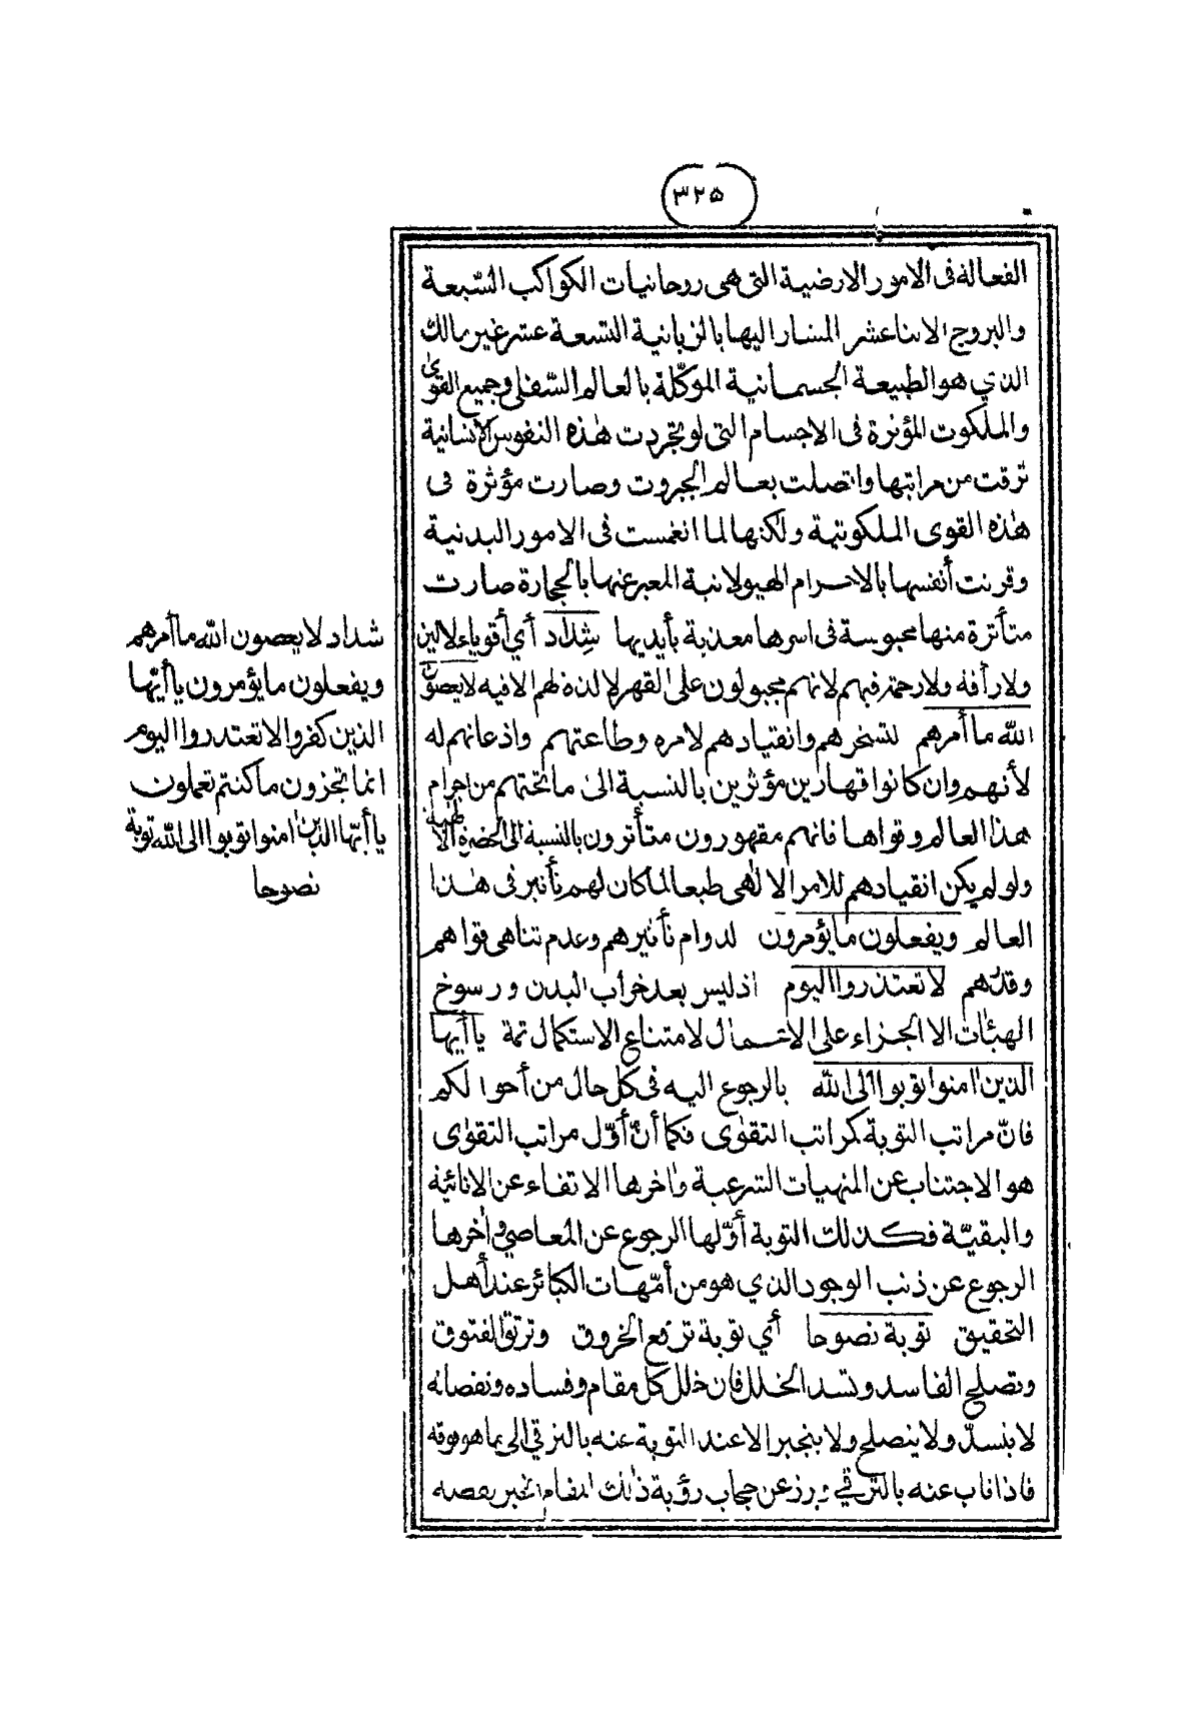 ٣٢٥
الفعالة فى الامور الارضية التى هى روحانيات الكواكب السّبعة
والبروج الاثنا عشر المشار اليها بالزبانية التسعة عشر غير مالك
الذي هو الطبيعة الجسمانية الموكّلة بالعالم السّفلي وجميع القوىٰ
والملكوت المؤثرة فى الاجسام التى لو تجردت هٰذه النفوس الانسانية
ترقت من مراتبها واتصلت بعالم الجبروت وصارت مؤثرة فى
هٰذه القوى الملكوتية ولكنها لما انغمست فى الامور البدنية
وقرنت أنفسها بالاجرام الهيولانية المعبر عنها بالحجارة صارت
متأثرة منها محبوسة فى اسرها معذبة بأيديها شِدَاد أي أقوياء لا لين
ولا رأفة ولا رحمة فيهم لانهم مجبولون على القهر لا لذة لهم الا فيه لا يعصون
الله ما أمرهم لتسخرهم وانقيادهم لامره وطاعتهم واذعانهم له
لأنهم وان كانوا قهارين مؤثرين بالنسبة الى ما تحتهم من اجرام
هذا العالم وقواها فانهم مقهورون متأثرون بالنسبة الى الحضرة الالٰهية
ولو لم يكن انقيادهم للامر الالٰهى طبعا لما كان لهم تأثير فى هٰذا
العالم ويفعلون ما يؤمرون لدوام تأثيرهم وعدم تناهى قواهم
وقدرهم لا تعتذروا اليوم اذ ليس بعد خراب البدن ورسوخ
الهيئات الا الجزاء على الاعمال لامتناع الاستكمال ثمة يا أيها
الذين اٰمنوا توبوا الى الله بالرجوع اليه فى كل حال من أحوالكم
فانّ مراتب التوبة كمراتب التقوىٰ فكما أنّ أوّل مراتب التقوىٰ
هو الاجتناب عن المنهيات الشرعية واٰخرها الاتقاء عن الانائية
والبقيّة فكذلك التوبة أوّلها الرجوع عن المعاصي واٰخرها
الرجوع عن ذنب الوجود الذي هو من أمّهات الكبائر عند أهل
التحقيق توبة نصوحا أي توبة ترقع الخروق وترتق الفتوق
وتصلح الفاسد وتسد الخلل فان خلل كل مقام وفساده ونقصانه
لا ينسدّ ولا ينصلح ولا ينجبر الا عند التوبة عنه بالترقي الى ما هو فوقه
فاذا تاب عنه بالترقي برز عن حجاب رؤية ذٰلك المقام انجبر نقصه
شداد لا يعصون الله ما أمرهم
ويفعلون ما يؤمرون يا أيّها
الذين كفروا لا تعتذروا اليوم
انما تجزون ما كنتم تعملون
يا أيّها الذين اٰمنوا توبوا الى الله توبة
نصوحا